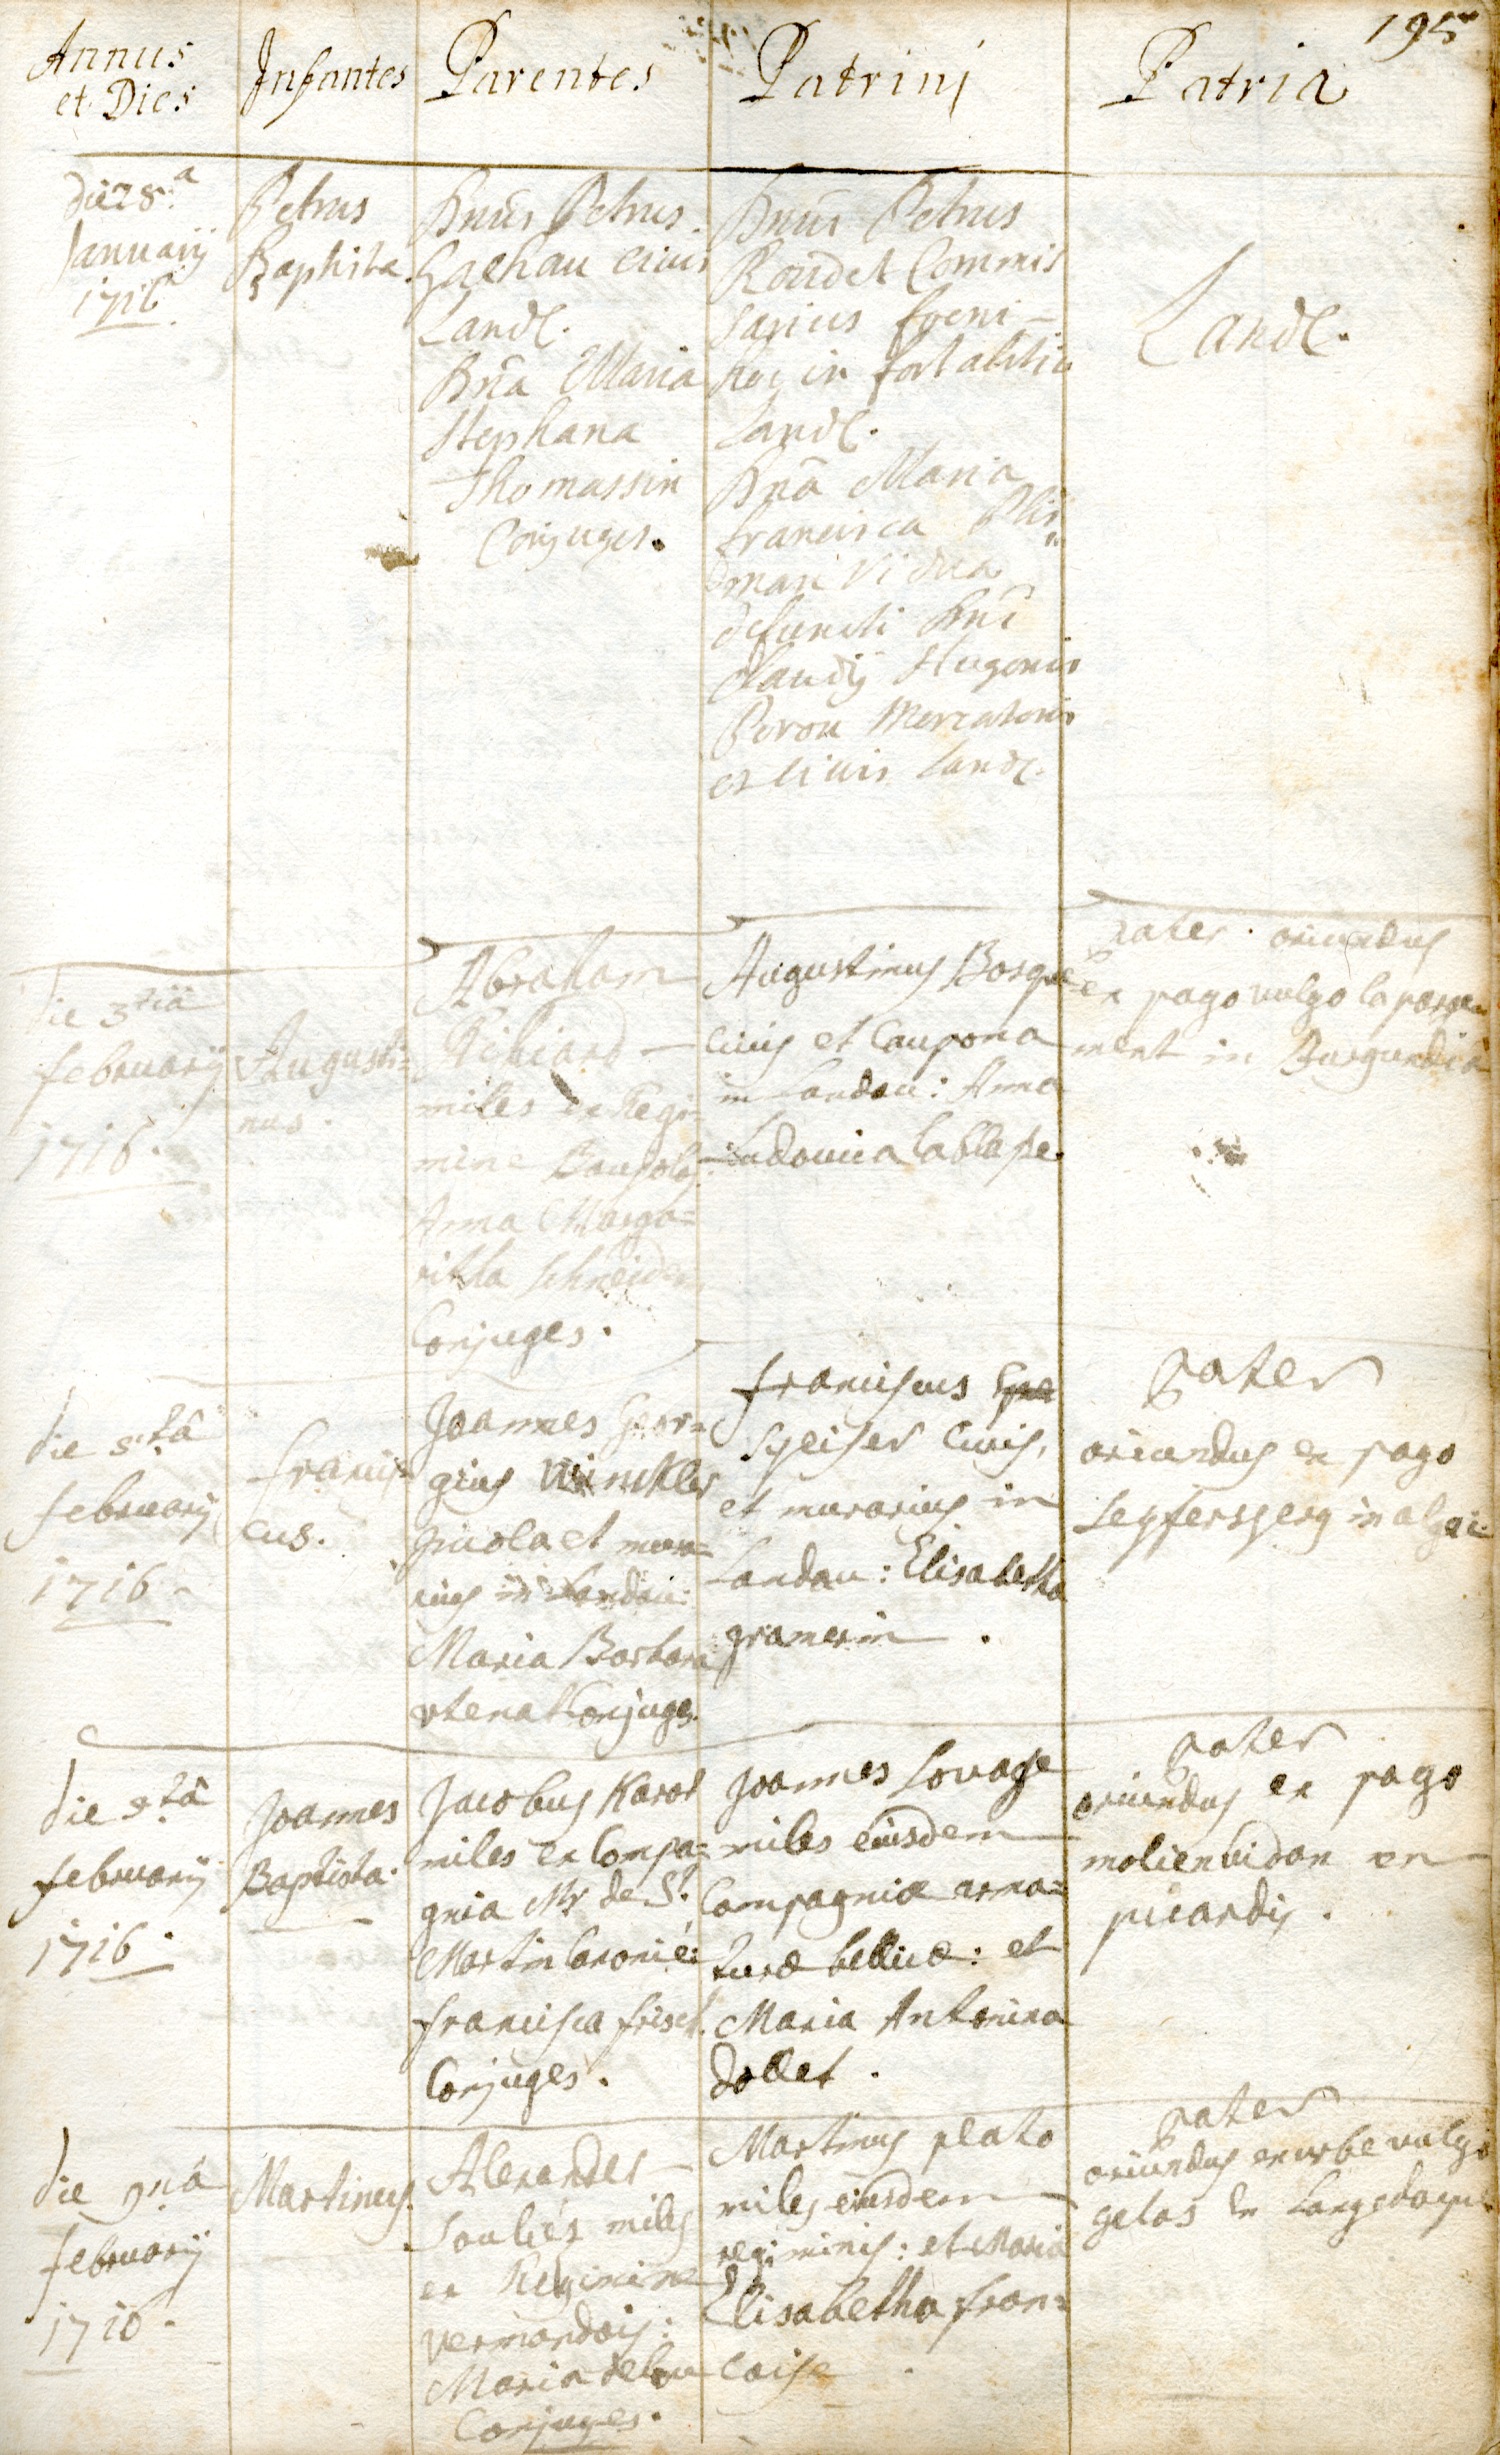 195
Annus
et Dies
Infantes
Parentes
Patrini
Patria
Die 28.a
Januarij
1716
Petrus
Baptista
Dnus Petrus
Gachau Civis
Land.
Dna Maria
Stephana
Thomassin
Conjuges.
Dnus Petrus
Roudet Commis
sarius foeni
hoc in fortalitio
Land.
Dna Maria
francisca
vidua
defuncti Dni
Claudij Hugonis
Peron Mercatoris
et Civis Land.
Land.
die 3tiâ
februarij
1716.
Augusti=
nus.
Abraham
Ribiard
miles ex Regi
min
Anna Marga=
ritha Schneider
Conjuges.
Augustinus Bosque
civis et Caupona
in Landau: Anna
Ludovica
pater oriundus
ex pago vulgo
ment in Burgundiâ
die 5tâ
februarij
1716.
francis=
cus.
Joannes Geor=
gius Winckler
incola et mura=
rius in Landau:
Maria Barbara
Conjuges.
franciscus
Speiser Civis,
et murarius in
Landau: Elisabetha
gramerin.
pater
oriundus ex pago
in algai.
die
februarij
1716.
Joannes
Baptista.
Jacobus Karot
miles ex Compa=
gnia Mr de St.
Martin
francisca frisch.
Conjuges.
Joannes Lovage
miles eiusdem
Compagniæ arma=
turæ bellicæ: et
Maria Antonina
dollet.
pater
oriundus ex pago
molienvidan en
picardij.
die 9nâ
februarij
1716.
Martinus.
Alexander
Souliés miles
ex Regimine
vermandois:
Maria
Conjuges.
Martinus plato
miles eiusdem
regiminis: et Maria
Elisabetha fran=
coise.
pater
oriundus ex urbe vulgo
gelas en